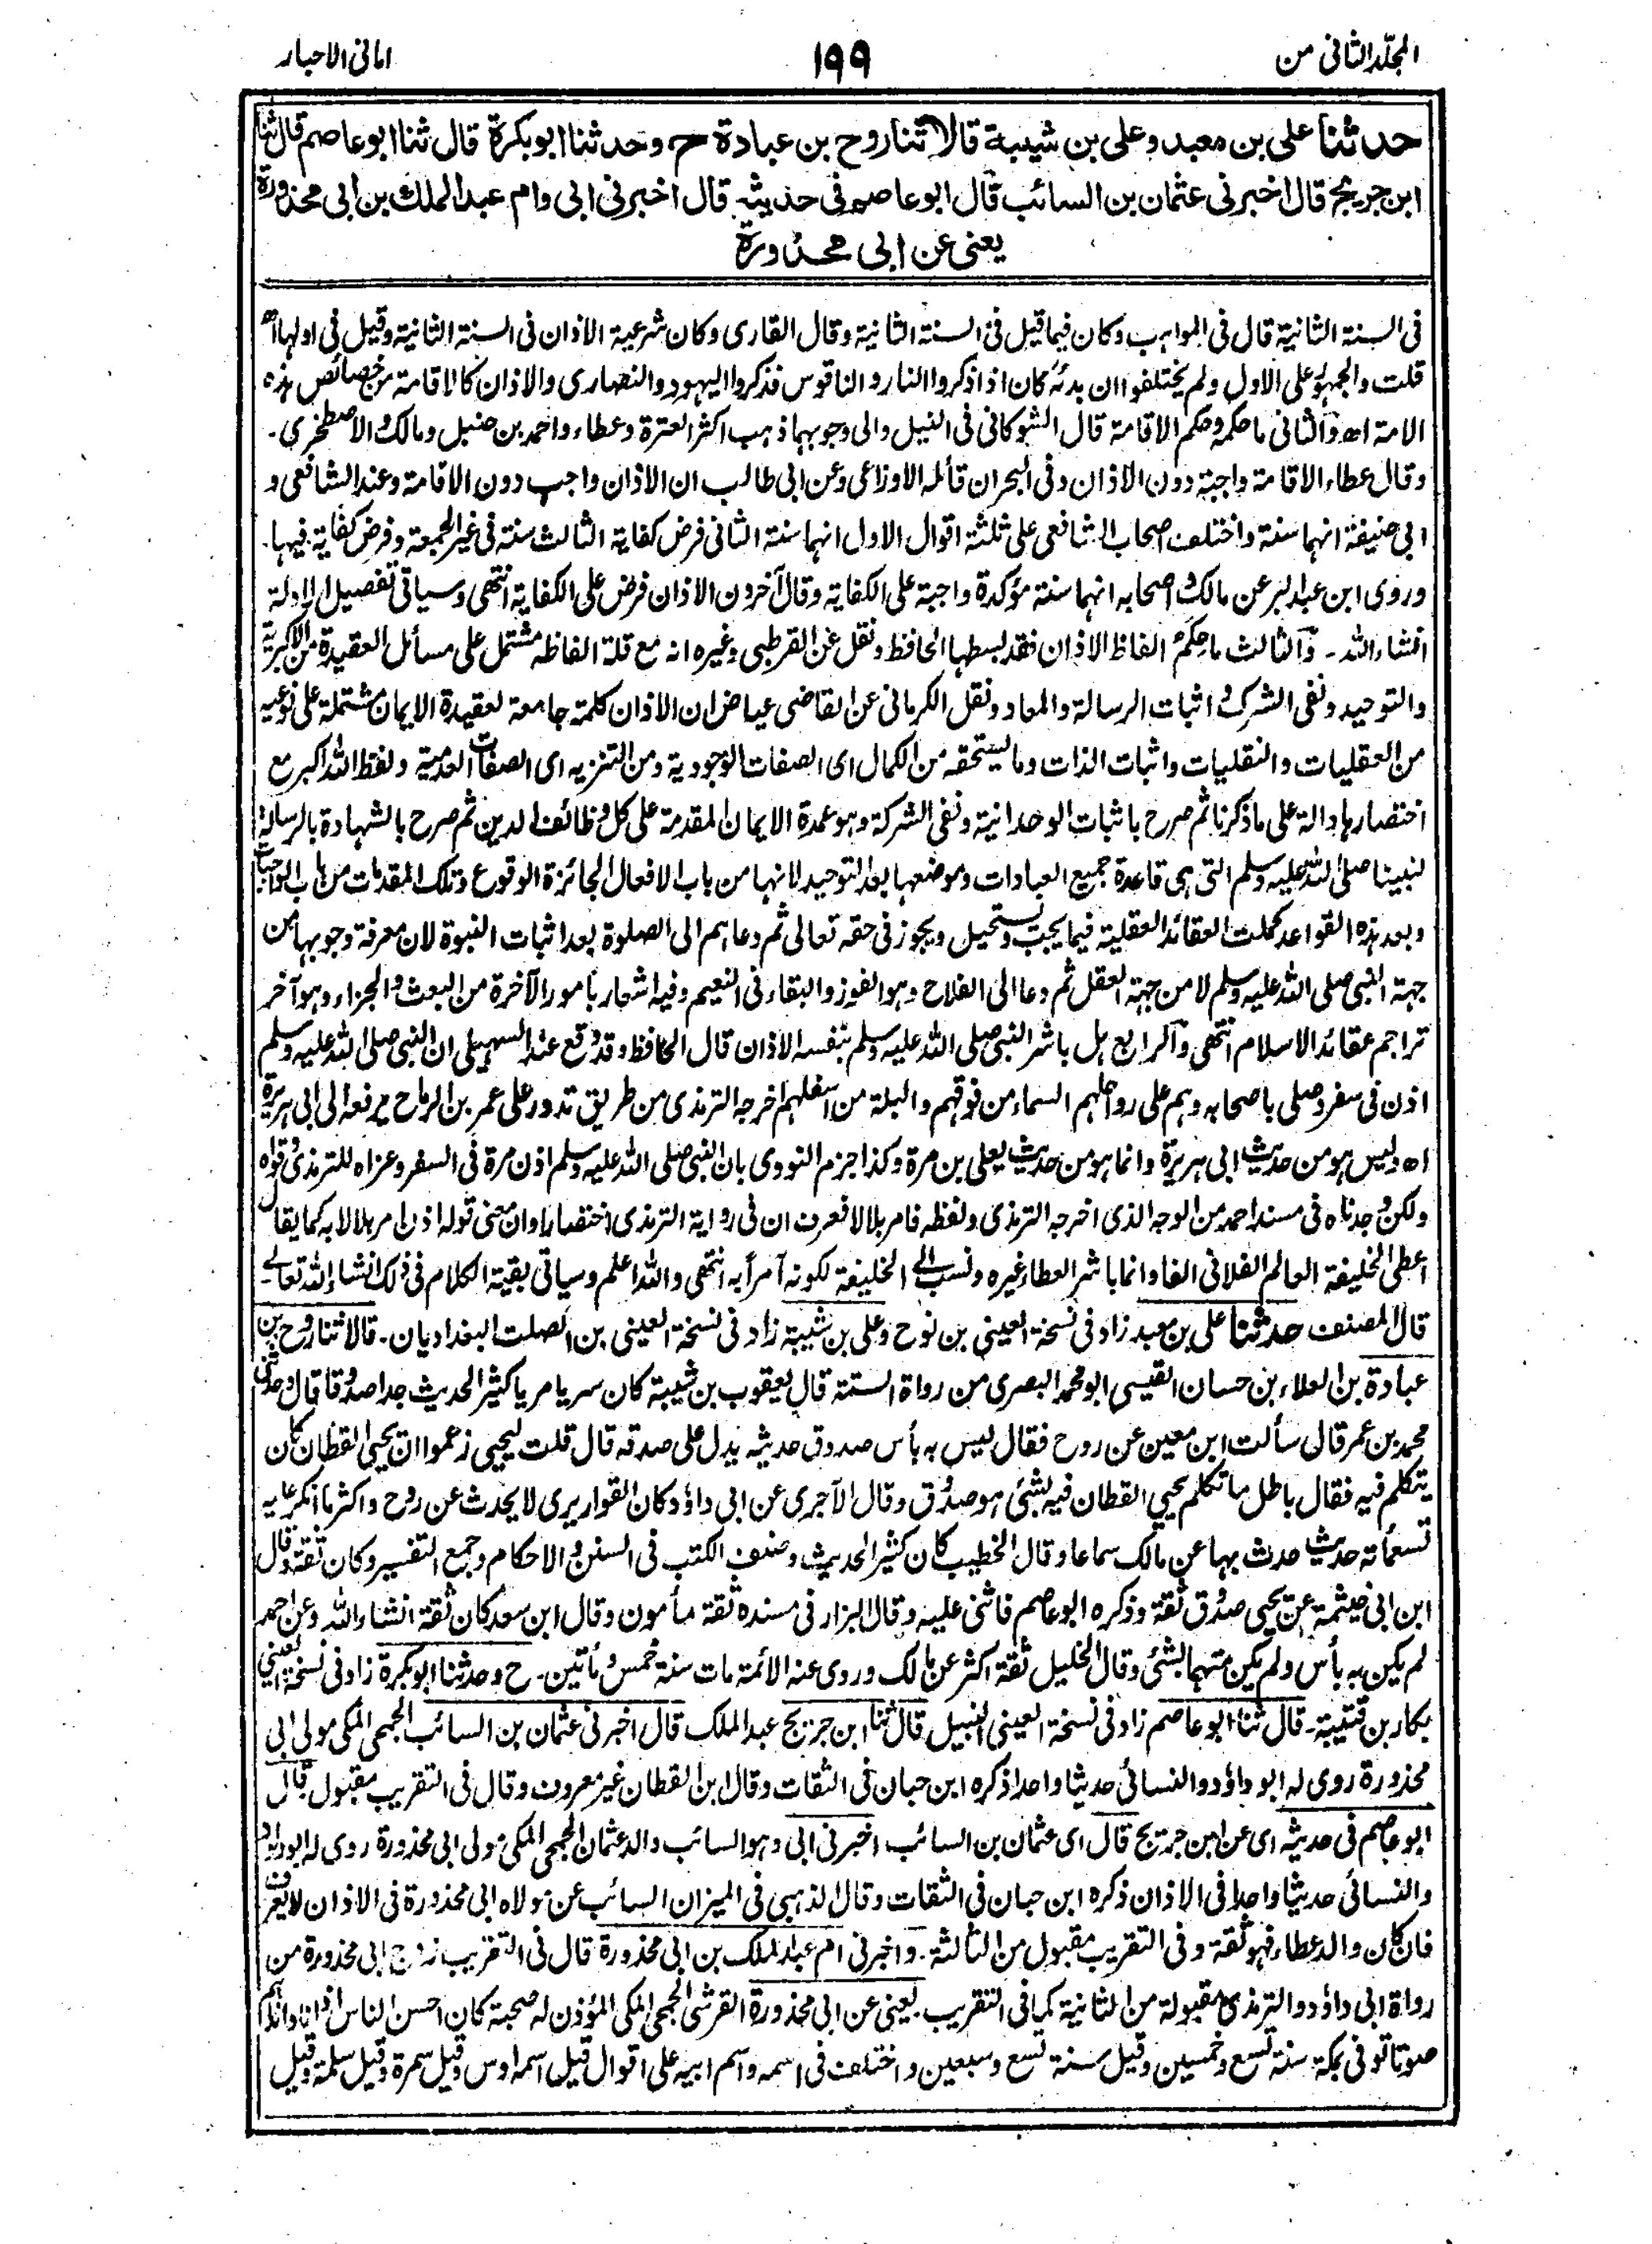 المجلد الثانی من
۱۹۹
امانی الاحبار
حدثنا علی بن معبد وعلی بن شیبة قالا ثنا روح بن عبادة ح وحدثنا ابوبکرة قال ثنا ابوعاصم قال ثنا
ابن جریج قال اخبرنی عثمان بن السائب قال ابوعاصم فی حدیثه قال اخبرنی ابی وام عبد الملك بن ابی محذورة
یعنی عن ابی محذورة
فی السنة الثانیة قال فی المواهب وکان فیما قیل فی السنة الثانیة وقال القاری وکان شرعیة الاذان فی السنة الثانیة وقیل فی اولها اھ
قلت والجمهور علی الاول ولم یختلفوا ان بدئه کان اذ اذکروا النار والناقوس فذکروا الیهود والنصاری والاذان کالاقامة من خصائص هذه
الامة اھ والثانی ما حکمه وحکم الاقامة قال الشوکانی فی النیل والی وجوبهما ذهب اکثر العترة وعطاء واحمد بن حنبل ومالك والاصطخری۔
وقال عطاء الاقامة واجبة دون الاذان وفی البحر ان قائله الاوزاعی وعن ابی طالب ان الاذان واجب دون الاقامة وعند الشافعی و
ابی حنیفة انهما سنة واختلف اصحاب الشافعی علی ثلثة اقوال الاول انهما سنة الثانی فرض کفایة الثالث سنة فی غیر الجمعة وفرض کفایة فیها۔
وروی ابن عبد البر عن مالك واصحابه انهما سنة مؤکدة واجبة علی الکفایة وقال آخرون الاذان فرض علی الکفایة انتهی وسیاتی تفصیل الادلة
انشاء الله۔ والثالث ما حکم الفاظ الاذان فقد بسطها الحافظ ونقل عن القرطبی وغیره انه مع قلة الفاظه مشتمل علی مسائل العقیدة من الاکبریة
والتوحید ونفی الشرك واثبات الرسالة والمعاد ونقل الکرمانی عن القاضی عیاض ان الاذان کلمة جامعة لعقیدة الایمان مشتملة علی نوعیه
من العقلیات والنقلیات واثبات الذات وما یستحقه من الکمال ای الصفات الوجودیة ومن التنزیه ای الصفات العدمیة ولفظ الله اکبر مع
اختصارها دالة علی ما ذکرنا ثم صرح باثبات الوحدانیة ونفی الشرکة وهو عمدة الایمان المقدمة علی کل وظائف الدین ثم صرح بالشهادة بالرسالة
لنبینا صلی الله علیه وسلم التی هی قاعدة جمیع العبادات وموضعها بعد التوحید لانها من باب الافعال الجائزة الوقوع وتلك المقدمات من باب الواجبات
وبعد هذه القواعد کملت العقائد العقلیة فیما یجب ویستحیل ویجوز فی حقه تعالی ثم دعاهم الی الصلوة بعد اثبات النبوة لان معرفة وجوبها من
جهة النبی صلی الله علیه وسلم لا من جهة العقل ثم دعا الی الفلاح وهو الفوز والبقاء فی النعیم وفیه اشعار بامور الآخرة من البعث والجزاء وهو آخر
تراجم عقائد الاسلام انتهی والرابع هل باشر النبی صلی الله علیه وسلم بنفسه الاذان قال الحافظ وقد وقع عند السهیلی ان النبی صلی الله علیه وسلم
اذن فی سفر وصلی باصحابه وهم علی رواحلهم السماء من فوقهم والبلة من اسفلهم اخرجه الترمذی من طریق تدور علی عمر بن الرماح یرفعه الی ابی هریرة
اھ ولیس هو من حدیث ابی هریرة وانما هو من حدیث یعلی بن مرة وکذا جزم النووی بان النبی صلی الله علیه وسلم اذن مرة فی السفر وعزاه للترمذی وقواه
ولکن وجدناه فی مسند احمد من الوجه الذی اخرجه الترمذی ولفظه فامر بلالا فعرف ان فی روایة الترمذی اختصارا وان معنی قوله اذن امر بلالا به کما یقال
اعطی الخلیفة العالم الفلانی الفا وانما باشر العطاء غیره ونسب الی الخلیفة لکونه آمرا به انتهی والله اعلم وسیاتی بقیة الکلام فی ذلك انشاء الله تعالی۔
قال المصنف حدثنا علی بن معبد زاد فی نسخة العینی بن نوح وعلی بن شیبة زاد فی نسخة العینی بن الصلت البغدادیان۔ قالا ثنا روح بن
عبادة بن العلاء بن حسان القیسی ابومحمد البصری من رواة الستة قال یعقوب بن شیبة کان سریا مریا کثیر الحدیث جدا صدوقا قال وحدثنی
محمد بن عمر قال سألت ابن معین عن روح فقال لیس به بأس صدوق حدیثه یدل علی صدقه قال قلت لیحیی زعموا ان یحیی القطان کان
یتکلم فیه فقال باطل ما تکلم یحیی القطان فیه بشئ هو صدوق وقال الآجری عن ابی داؤد کان القواریری لا یحدث عن روح واکثر ما انکر علیه
تسعمأته حدیث حدث بها عن مالك سماعا وقال الخطیب کان کثیر الحدیث وصنف الکتب فی السنن والاحکام وجمع التفسیر وکان ثقة وقال
ابن ابی خیثمة عن یحیی صدوق ثقة وذکره ابوعاصم فاثنی علیه وقال البزار فی مسنده ثقة مأمون وقال ابن سعد کان ثقة انشاء الله وعن احمد
لم یکن به بأس ولم یکن متهما بشئ وقال الخلیل ثقة اکثر عن مالك وروی عنه الائمة مات سنة خمس ومأتین۔ ح وحدثنا ابوبکرة زاد فی نسخة العینی
بکار بن قتیبة۔ قال ثنا ابوعاصم زاد فی نسخة العینی النبیل قال ثنا ابن جریج عبد الملك قال اخبرنی عثمان بن السائب الجمحی المکی مولی ابی
محذورة روی له ابوداؤد والنسائی حدیثا واحدا ذکره ابن حبان فی الثقات وقال ابن القطان غیر معروف وقال فی التقریب مقبول قال
ابوعاصم فی حدیثه ای عن ابن جریج قال ای عثمان بن السائب اخبرنی ابی وهو السائب والد عثمان الجمحی المکی مولی ابی محذورة روی له ابوداؤد
والنسائی حدیثا واحدا فی الاذان ذکره ابن حبان فی الثقات وقال الذهبی فی المیزان السائب عن مولاه ابی محذورة فی الاذان لایعرف
فان کان والد عطاء فهو ثقة وفی التقریب مقبول من الثالثة۔ واخبرنی ام عبد الملك بن ابی محذورة قال فی التقریب زوج ابی محذورة من
رواة ابی داؤد والترمذی مقبولة من الثانیة کما فی التقریب یعنی عن ابی محذورة القرشی الجمحی المکی المؤذن له صحبة کان احسن الناس اذانا وانداهم
صوتا توفی بمکة سنة تسع وخمسین وقیل سنة تسع وسبعین واختلف فی اسمه واسم ابیه علی اقوال قیل اسمه اوس وقیل سمرة وقیل سلمة وقیل